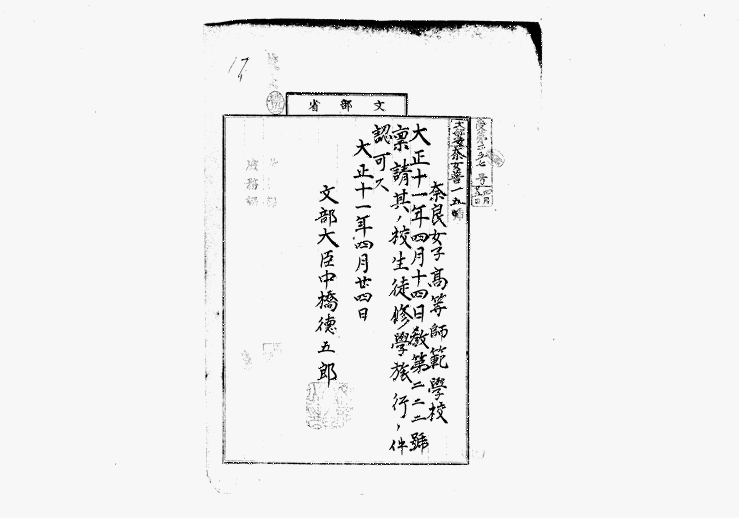 17
文部省
奈良女子高等師範學校
大正十一年四月十四日教第二二二號
稟請其ノ校生徒修學旅行ノ件
認可ス
大正十一年四月廿四日
文部大臣中橋德五郎